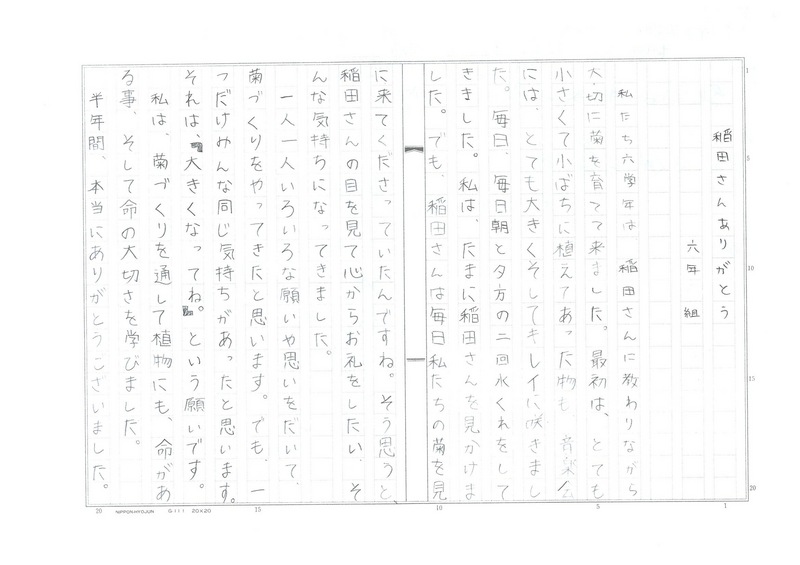 稲田さんありがとう
六年　組
私たち六学年は、稲田さんに教わりながら
大切に菊を育てて来ました。最初は、とても
小さくて小ばちに植えてあった物も、音楽会
には、とても大きくそしてキレイに咲きまし
た。毎日、毎日朝と夕方の二回水くれをして
きました。私は、たまに稲田さんを見かけま
した。でも、稲田さんは毎日私たちの菊を見
に来てくださっていたんですね。そう思うと、
稲田さんの目を見て心からお礼をしたい、そ
んな気持ちになってきました。
一人一人いろいろな願いや思いをだいて、
菊づくりをやってきたと思います。でも、一
つだけみんな同じ気持ちがあったと思います。
それは、大きくなってね。という願いです。
私は、菊づくりを通して植物にも、命があ
る事、そして命の大切さを学びました。
半年間、本当にありがとうございました。
1
5
10
15
20
1
5
10
15
20
NIPPON HYOJUN G111 20×20